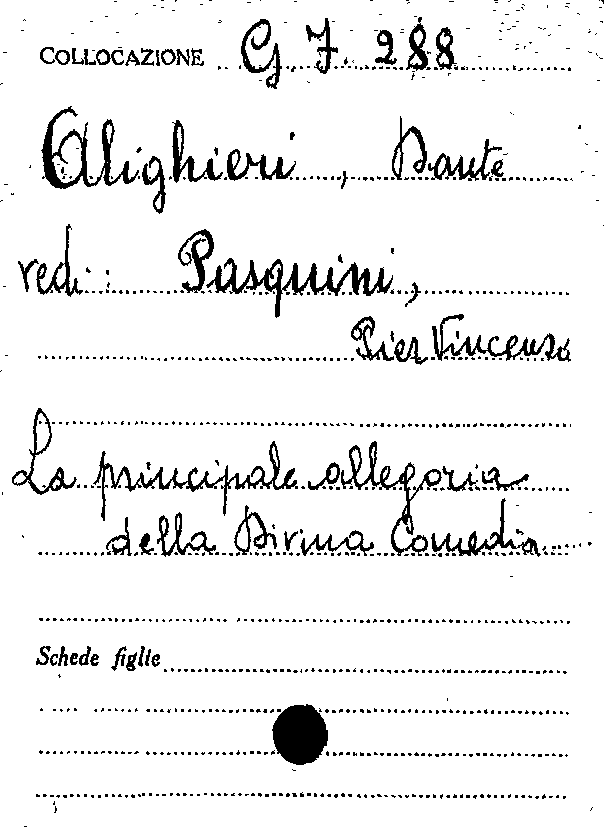 COLLOCAZIONE G. 7. 288
Alighieri, Dante
vedi: Pasquini,
Pier Vincenzo
La principale allegoria
della Divina Comedia
Schede figlie